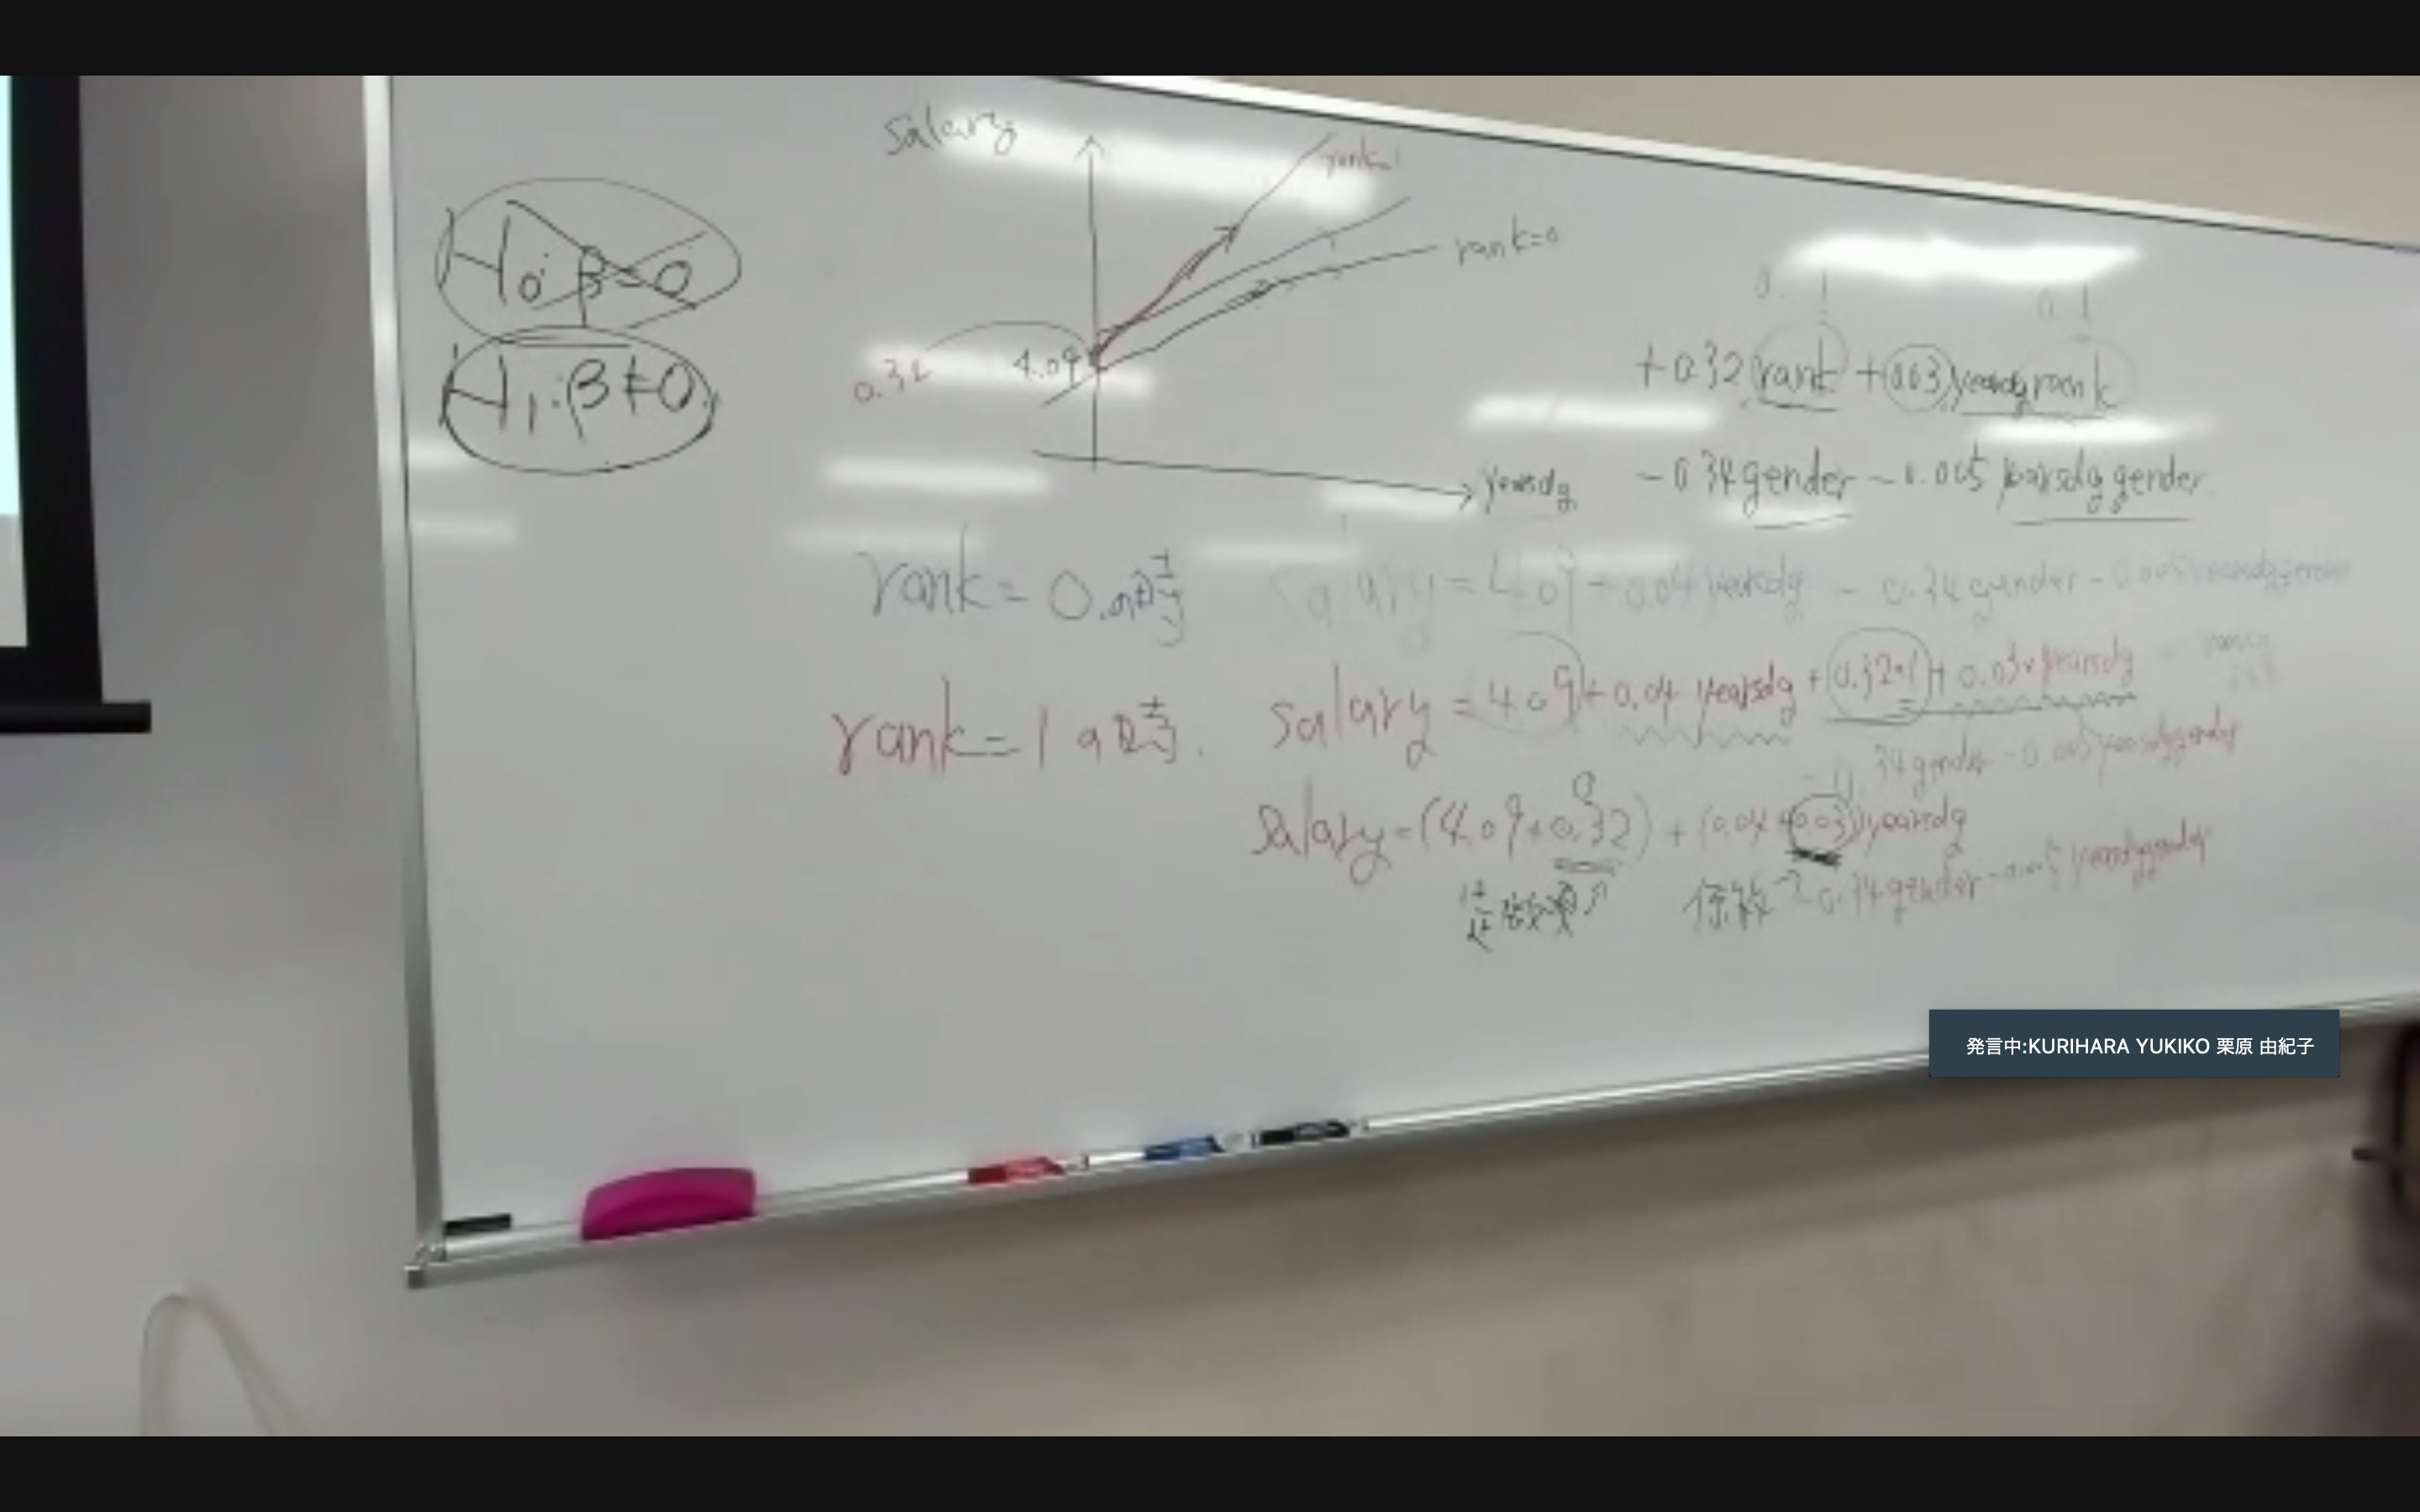 salary
rank=1
rank=0
H₀: β=0
H₁: β≠0
0.32
4.09
yearsdg
0. 1
0. 1
+0.32 rank + 0.03 yearsdg rank
-0.34 gender - 0.005 yearsdg gender
rank = 0 のとき
salary = 4.09 + 0.04 yearsdg - 0.34 gender - 0.005 yearsdg gender
rank = 1 のとき.
salary = 4.09 + 0.04 yearsdg + 0.32×1 + 0.03×yearsdg
34 gender - 0.005 yearsdg gender
salary = (4.09+0.32) + (0.04+0.03) yearsdg
係数 - 0.34 gender - 0.005 yearsdg gender
発言中:KURIHARA YUKIKO 栗原 由紀子